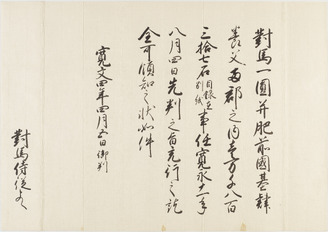 對馬一圓并肥前國基肄
養父兩郡之内壱万弐千八百
三拾七石目録在別紙事任寛永十一年
八月四日先判之旨充行之訖
全可領知之状如件
寛文四年四月五日御判
對馬侍従とのへ